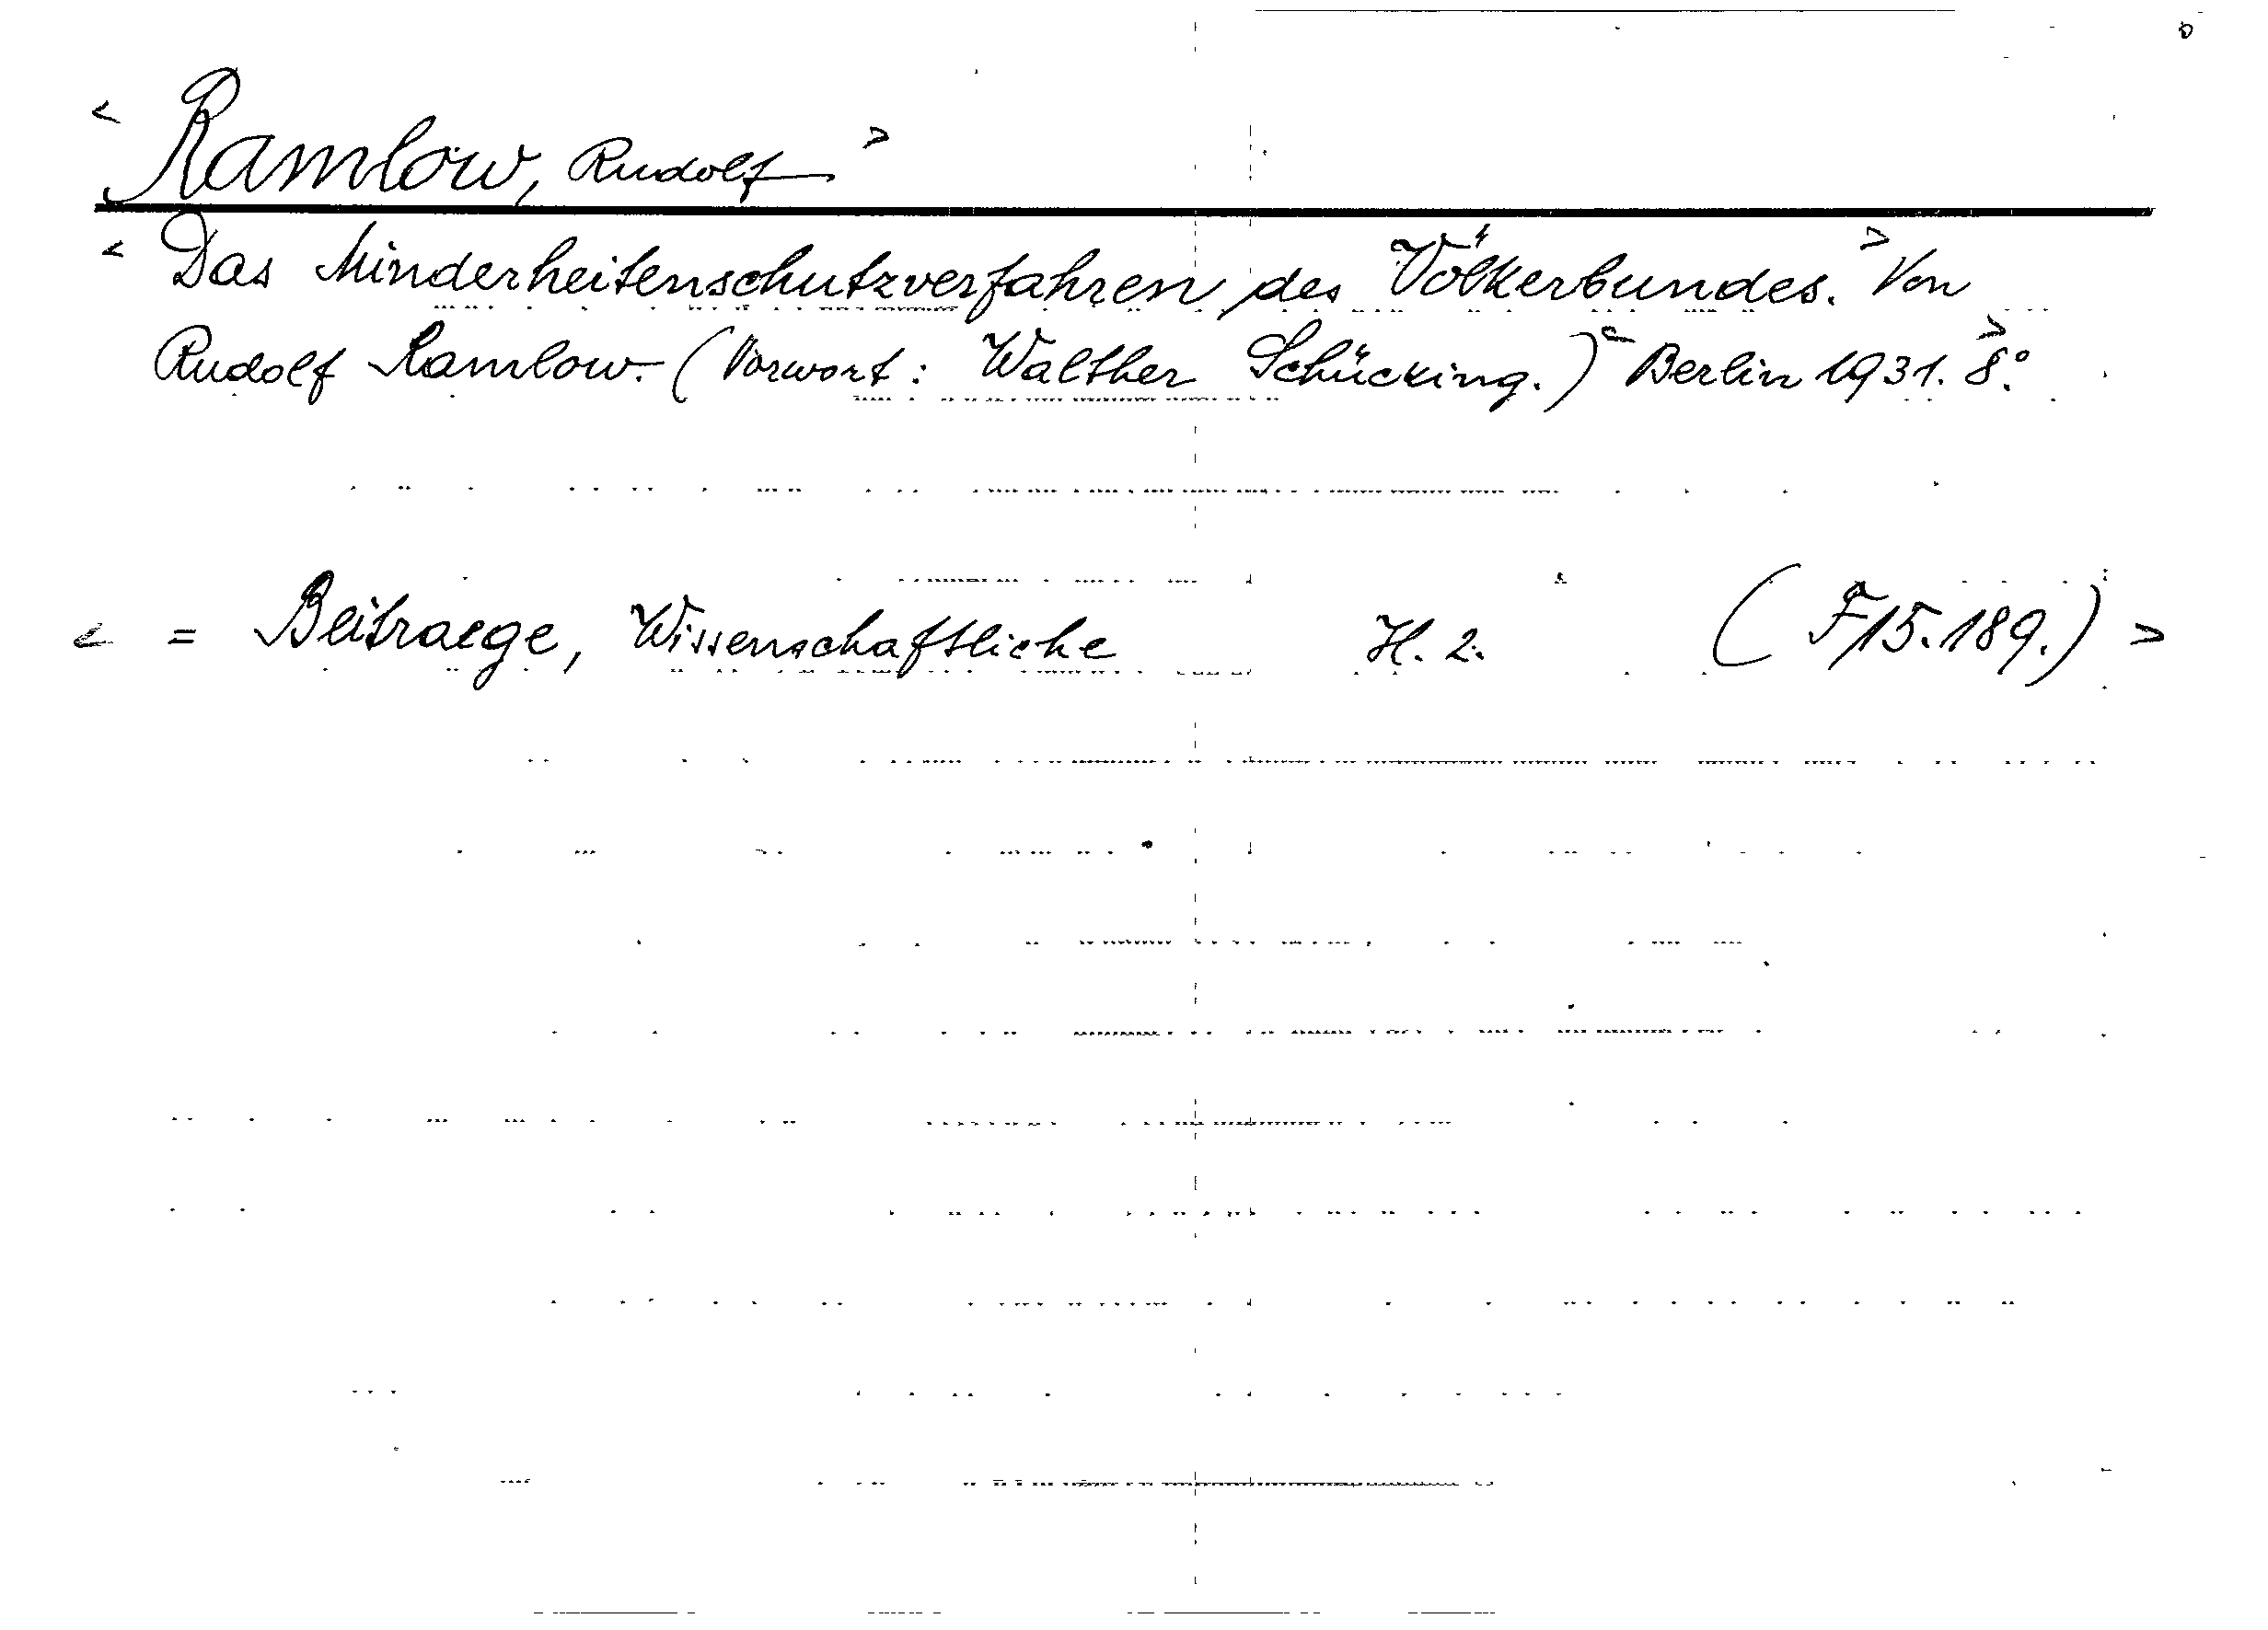 < Ramlow, Rudolf >
< Das Minderheitenschutzverfahren des Völkerbundes. > Von
Rudolf Ramlow. (Vorwort: Walther Schücking.) < Berlin 1931. > 8°.
< = Beitraege, Wissenschaftliche H. 2. (F15.189.) >